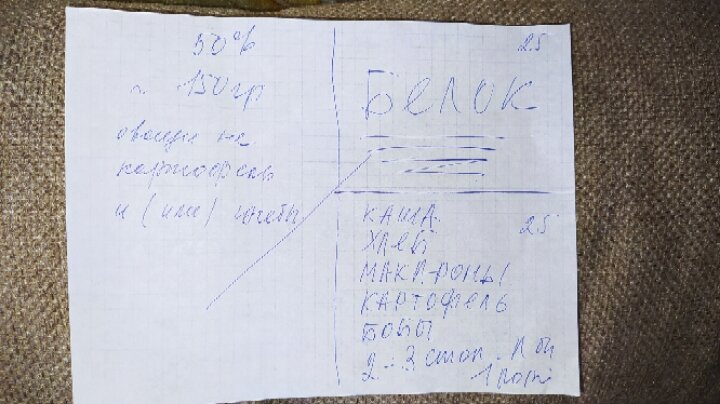 50%
~ 150 гр
овощи не
картофель
и (или)
25
БЕЛОК
25
КАША
ХЛЕБ
МАКАРОНЫ
КАРТОФЕЛЬ
БОБЫ
2-3 стол. л
1